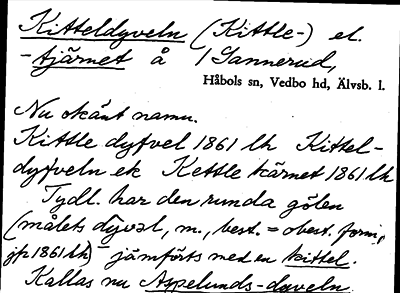 Kitteldyveln (Kittle-) el.
-tjärnet å /Sannerud,
Håbols sn, Vedbo hd, Älvsb. l.
Nu okänt namn.
Kittle dyfvel 1861 lh Kittel-
dyfveln ek Kettle kärnet 1861 lh
Tydl. har den runda gölen
(målets dyvəl, m., best. = obest. form,
jfr 1861 lh) jämförts med en kittel.
Kallas nu Aspelunds-daveln.